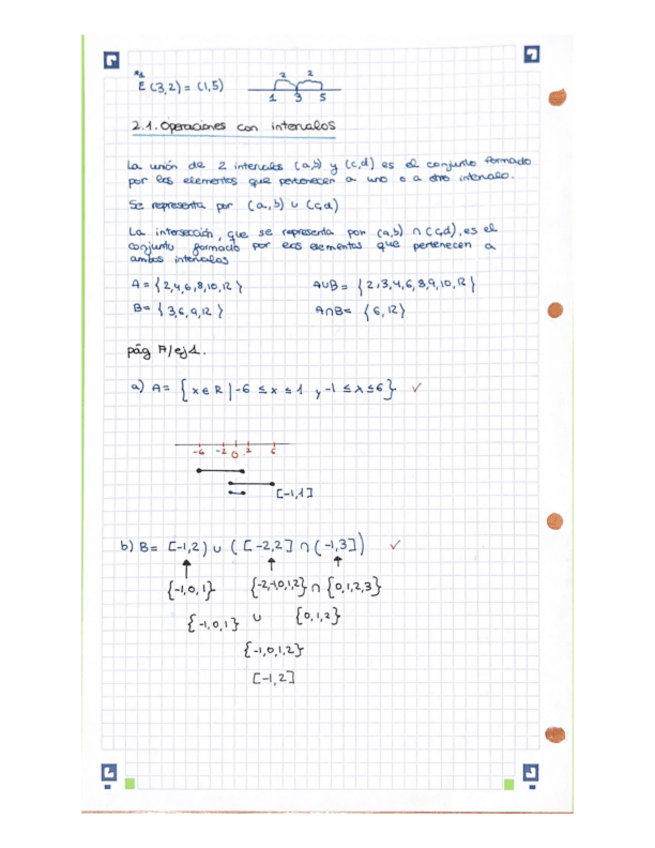 *1
E (3,2) = (1,5)
2 2
1 3 5
2.1. Operaciones con intervalos
La unión de 2 intervalos (a,b) y (c,d) es el conjunto formado
por los elementos que pertenecen a uno o a otro intervalo.
Se representa por (a,b) ∪ (c,d)
La intersección, que se representa por (a,b) ∩ (c,d), es el
conjunto formado por los elementos que pertenecen a
ambos intervalos
A = {2,4,6,8,10,12} A∪B = {2,3,4,6,8,9,10,12}
B = {3,6,9,12} A∩B = {6,12}
pág /ej1.
a) A = {x ∈ R | -6 ≤ x ≤ 1 y -1 ≤ x ≤ 6} ✓
-6 -2 0 2 6
[-1,1]
b) B = [-1,2) ∪ ([-2,2] ∩ (-1,3]) ✓
{-1,0,1} {-2,-1,0,1,2} ∩ {0,1,2,3}
{-1,0,1} ∪ {0,1,2}
{-1,0,1,2}
[-1,2]